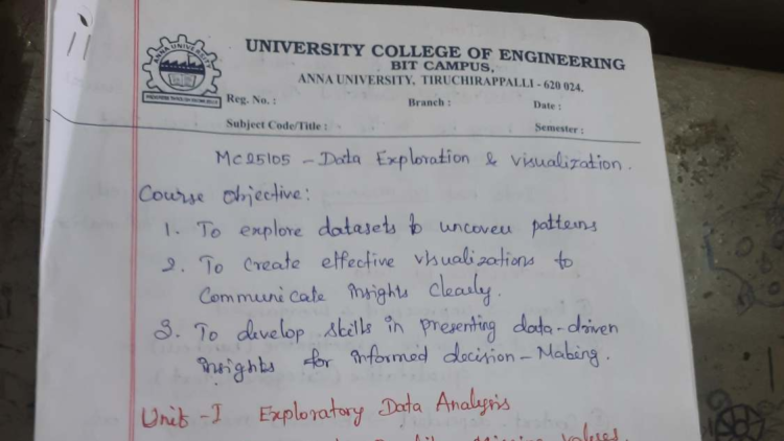 UNIVERSITY COLLEGE OF ENGINEERING
BIT CAMPUS,
ANNA UNIVERSITY, TIRUCHIRAPPALLI - 620 024.
ANNA UNIVERSITY
Reg. No. : Branch : Date :
Subject Code/Title : Semester :
MC25105 - Data Exploration & Visualization.
Course Objective:
1. To explore datasets to uncover patterns
2. To create effective visualizations to
Communicate insights Clearly.
3. To develop skills in presenting data-driven
insights for informed decision-Making.
Unit -I Exploratory Data Analysis
Missing values